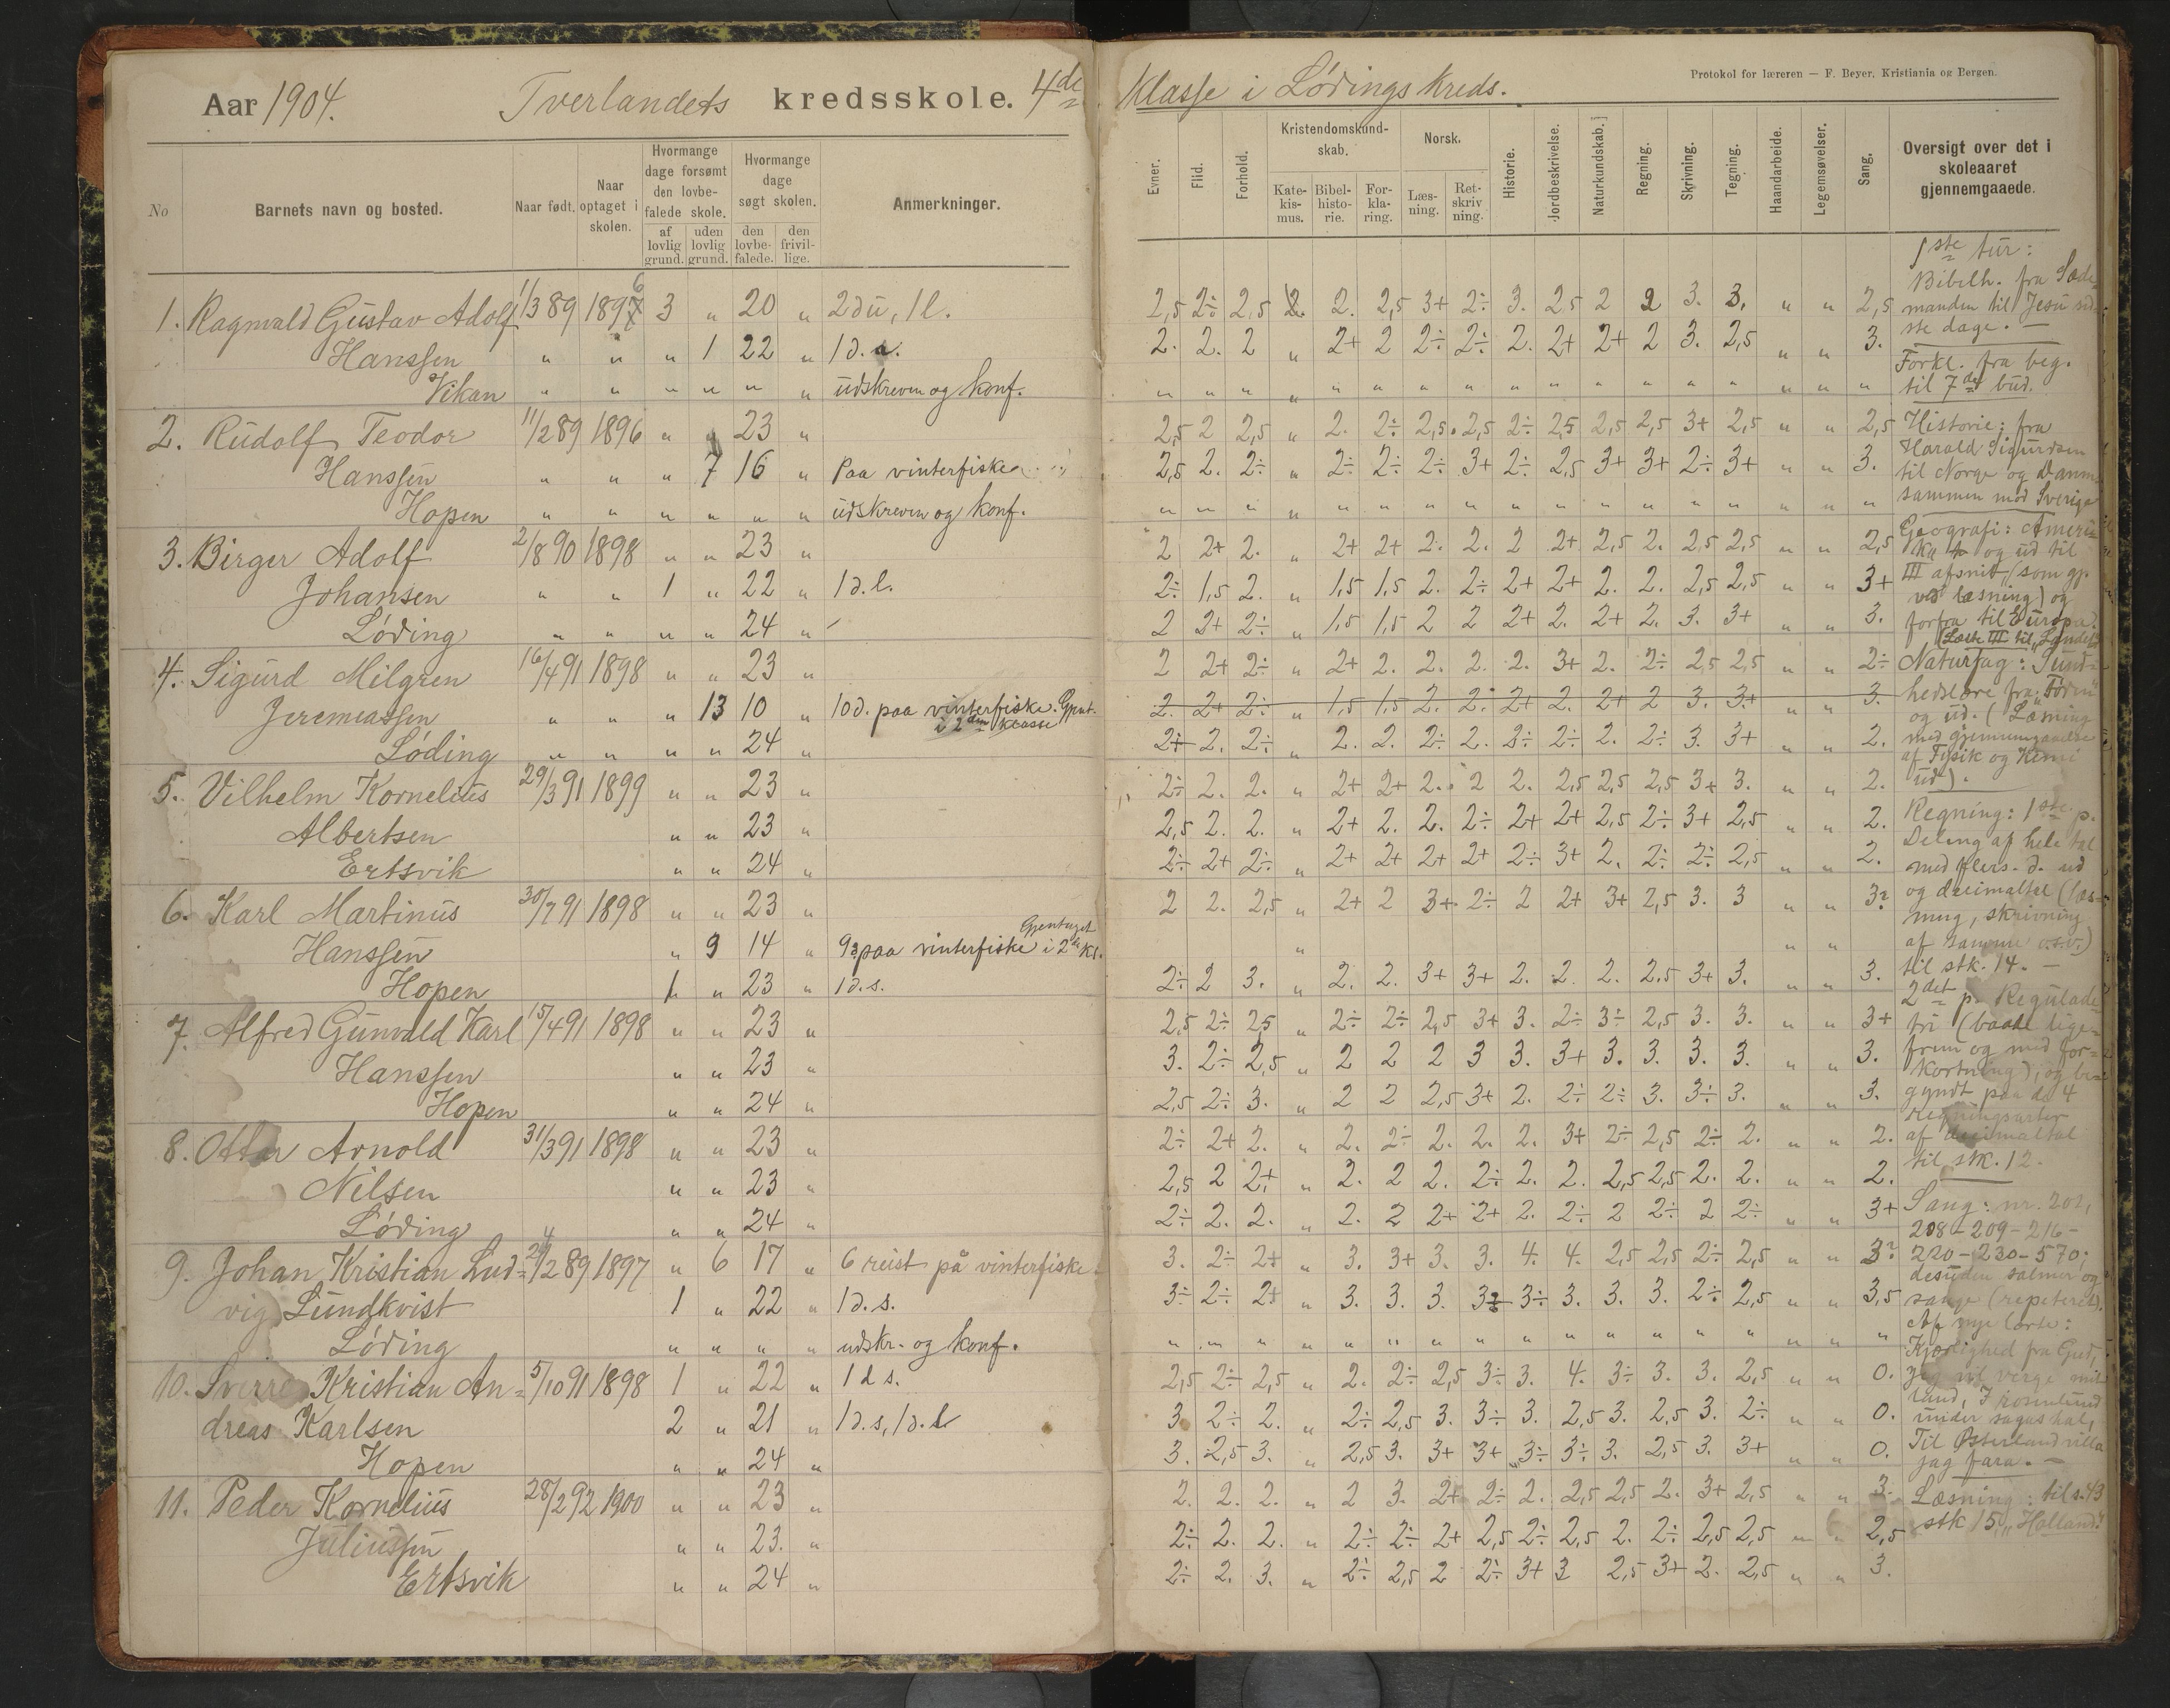 Aar 1904. Tverlandets kredsskole. 4de Klasse i Lødings Kreds.
Protokol for læreren — F. Beyer, Kristiania og Bergen.
No
Barnets navn og bosted.
Naar født.
Naar optaget i skolen.
Hvormange dage forsømt den lovbefalede skole.
af lovlig grund.
uden lovlig grund.
Hvormange dage søgt skolen.
den lovbefalede.
den frivillige.
Anmerkninger.
Evner.
Flid.
Forhold.
Kristendomskundskab.
Katekismus.
Bibelhistorie.
Forklaring.
Norsk.
Læsning.
Retskrivning.
Historie.
Jordbeskrivelse.
Naturkundskab.
Regning.
Skrivning.
Tegning.
Haandarbeide.
Legemsøvelser.
Sang.
Oversigt over det i skoleaaret gjennemgaaede.
1. Ragnvald Gustav Adolf 1/3 89 1896 3 " 20 " 2 d u, 1 l.
Hanssen " " " 1 22 "
Vikan " " " " " " udskreven og konf.
2. Rudolf Teodor 11/2 89 1896 " " 23 "
Hanssen " " " 7 16 " Paa vinterfiske
Hopen " " " " " " udskreven og konf.
3. Birger Adolf 2/8 90 1898 " " 23 "
Johansen " " 1 " 22 " 1 d. l.
Løding " " " " 24 "
4. Sigurd Milgren 16/4 91 1898 " " 23 "
Jeremiassen " " " 13 10 " 10 d. paa vinterfiske. Gjent.
i 2den klasse
Løding " " " " 24 "
5. Vilhelm Kornelius 29/3 91 1899 " " 23 "
Albertsen " " 23 "
Ertsvik " " 24 "
6. Karl Martinus 30/7 91 1898 " " 23 "
Hanssen " 9 14 " 9 paa vinterfiske Gjentaget i 2den Kl.
Hopen 1 " 23 " 1 d. s.
7. Alfred Gunvald Karl 15/4 91 1898 " " 23 "
Hanssen " " 23 "
Hopen " " 24 "
8. Ottar Arnold 31/3 91 1898 " " 23 "
Nilsen " " 23 "
Løding " " 24 "
9. Johan Kristian Lud= 1897 " 6 17 " 6 reist på vinterfiske.
vig Lundkvist 1 " 22 " 1 d. s.
Løding " " " " udskr. og konf.
10. Sverre Kristian An= 5/10 91 1898 1 " 22 " 1 d s.
dreas Karlsen 2 " 21 " 1 d. s, 1 d. l
Hopen " " 24 "
11. Peder Kornelius 28/2 92 1900 " " 23 "
Juliussen " " 23. "
Ertsvik " " 24 "
2,5 2÷ 2,5 2. 2. 2,5 3+ 2÷ 3. 2,5 2 2 3. 3. " " 2,5
2. 2. 2 " 2+ 2 2÷ 2÷ 2. 2+ 2+ 2 3. 2,5 " " 3.
" " " " " " " " " " " " " " " " "
2,5 2 2,5 " 2. 2÷ 2,5. 2,5 2÷ 2,5 2,5 2,5 3+ 2,5 " " 2,5
2,5 2. 2÷ " 2÷ 2÷ 2÷ 3+ 2÷ 2,5 3+ 3+ 2÷ 3+ " " 3.
" " " " " " " " " " " " " " " " "
2 2+ 2. " 2+ 2+ 2. 2. 2 2+ 2,5 2. 2,5 2,5 " " 2,5
2÷ 1,5 2. " 1,5 1,5 2. 2÷ 2+ 2+ 2. 2. 2,5 2,5 " " 3+
2 2+ 2÷ " 1,5 1,5 2 2 2+ 2. 2+ 2. 3. 3+ " " 3.
2 2+ 2÷ " 2+ 2. 2. 2. 2. 3+ 2. 2÷ 2,5 2,5 " " 2÷
2. 2+ 2÷ " 1,5 1,5 2. 2. 2+ 2. 2+ 2 3. 3+ " " 3.
2÷ 2. 2÷ " 2. 2. 2÷ 2. 2÷ 2÷ 2. 2÷ 3. 3+ " " 2.
2÷ 2. 2. " 2+ 2+ 2. 2 2. 2,5 2,5 2,5 3+ 3. " " 2.
2,5 2. 2. " 2+ 2. 2. 2÷ 2+ 2+ 2,5 2÷ 3+ 2,5 " " 2.
2÷ 2+ 2÷ " 2+ 2+ 2+ 2+ 2÷ 3+ 2. 2÷ 2÷ 2,5 " " 2.
2 2. 2,5 " 2+ 2 3+ 2÷ 2 2+ 3+ 2,5 3. 3 " " 3?
" " "
2÷ 2 3. " 2. 2. 3+ 3+ 2. 2. 2. 2,5 3+ 3. " " 3.
2,5 2÷ 2,5 " 2÷ 2÷ 2,5 3+ 3. 2÷ 3÷ 2,5 3. 3. " " 3+
3. 2÷ 2,5 " 2 2 2 3 3. 3+ 3. 3. 3. 3. " " 3.
2,5 2÷ 3. " 2 2 2,5 3+ 2. 2÷ 2÷ 3. 3÷ 3. " " 3.
2÷ 2+ 2. " 2. 2÷ 2. 2. 2. 3+ 2÷ 2,5 2÷ 2. " " 2.
2,5 2 2+ " 2. 2 2. 2÷ 2. 2. 2,5 2,5 2. 2. " " 2.
2÷ 2. 2. " 2. 2 2+ 2+ 2. 2÷ 2 2÷ 2 2÷ " " 3+
3. 2÷ 2+ " 3. 3+ 3. 3. 4. 4. 2,5 2,5 2÷ 2,5 " " 3?
3÷ 2÷ 2+ " 3. 3. 3. 3÷ 3÷ 3. 3. 3. 2÷ 2,5 " " 3,5
" " " " " " " " " " " " " " " " "
2,5 2÷ 2,5 " 2. 2÷ 2,5 3÷ 3. 4. 3÷ 3. 3. 2,5 " " 0.
3. 2÷ 2. " 2÷ 2,5 3. 3÷ 3. 2,5 3. 2,5 3. 2÷ " " 0.
3. 2,5 3. " 2,5 3. 3+ 3+ 3÷ 3÷ 3. 2,5 3. 3+ " " 0.
2. 2. 2. " 2 3. 2+ 2÷ 2. 2,5 2,5 2. 3+ 2,5 " " 3.
2÷ 2. 2. " 2÷ 2÷ 2+ 2,5 2÷ 2,5 2. 2÷ 2,5 2,5 " " 2,5
2÷ 2. 3. " 2÷ 2,5 2 2÷ 3+ 3 2,5 3+ 2. 2,5 " " 3.
1ste tur:
Bibelh. fra Sæde
manden til Jesu sid
ste dage. —
Forkl. fra beg.
til 7de bud.
Historie: fra
Harald Sigurdsen
til Norge og Danm.
sammen med Sverige
Geografi: Ameri=
ka og ud til
III afsnit, (som gj.
ved læsning) og
forfra til Europa.
Naturfag: Sund=
hedslære fra "Føden"
og ud. (Læsning
med gjennemgaaelse
af Fysik og Kemi
ud).
Regning: 1ste p.
Deling af hele tal
med flers. d. ud
og decimaltal (læs=
ning, skrivning
af samme o.s.v.)
til stk. 14. —
2det p. Regulade
tri (baade lige=
frem og med for=
kortning), og be=
gyndt paa de 4
Regningsarter
af decimaltal
til stk. 12.
Sang: nr. 201,
208-209-216-
220-230-570;
desuden salmer og
sange (repeteret).
Af nye lærte:
Kjærlighed fra Gud,
Jeg vil verge mit
land, I rosenlund
under sagas hal,
Til Østerland villa
jag fara. —
Læsning: til s. 43
stk 15, "Holland."